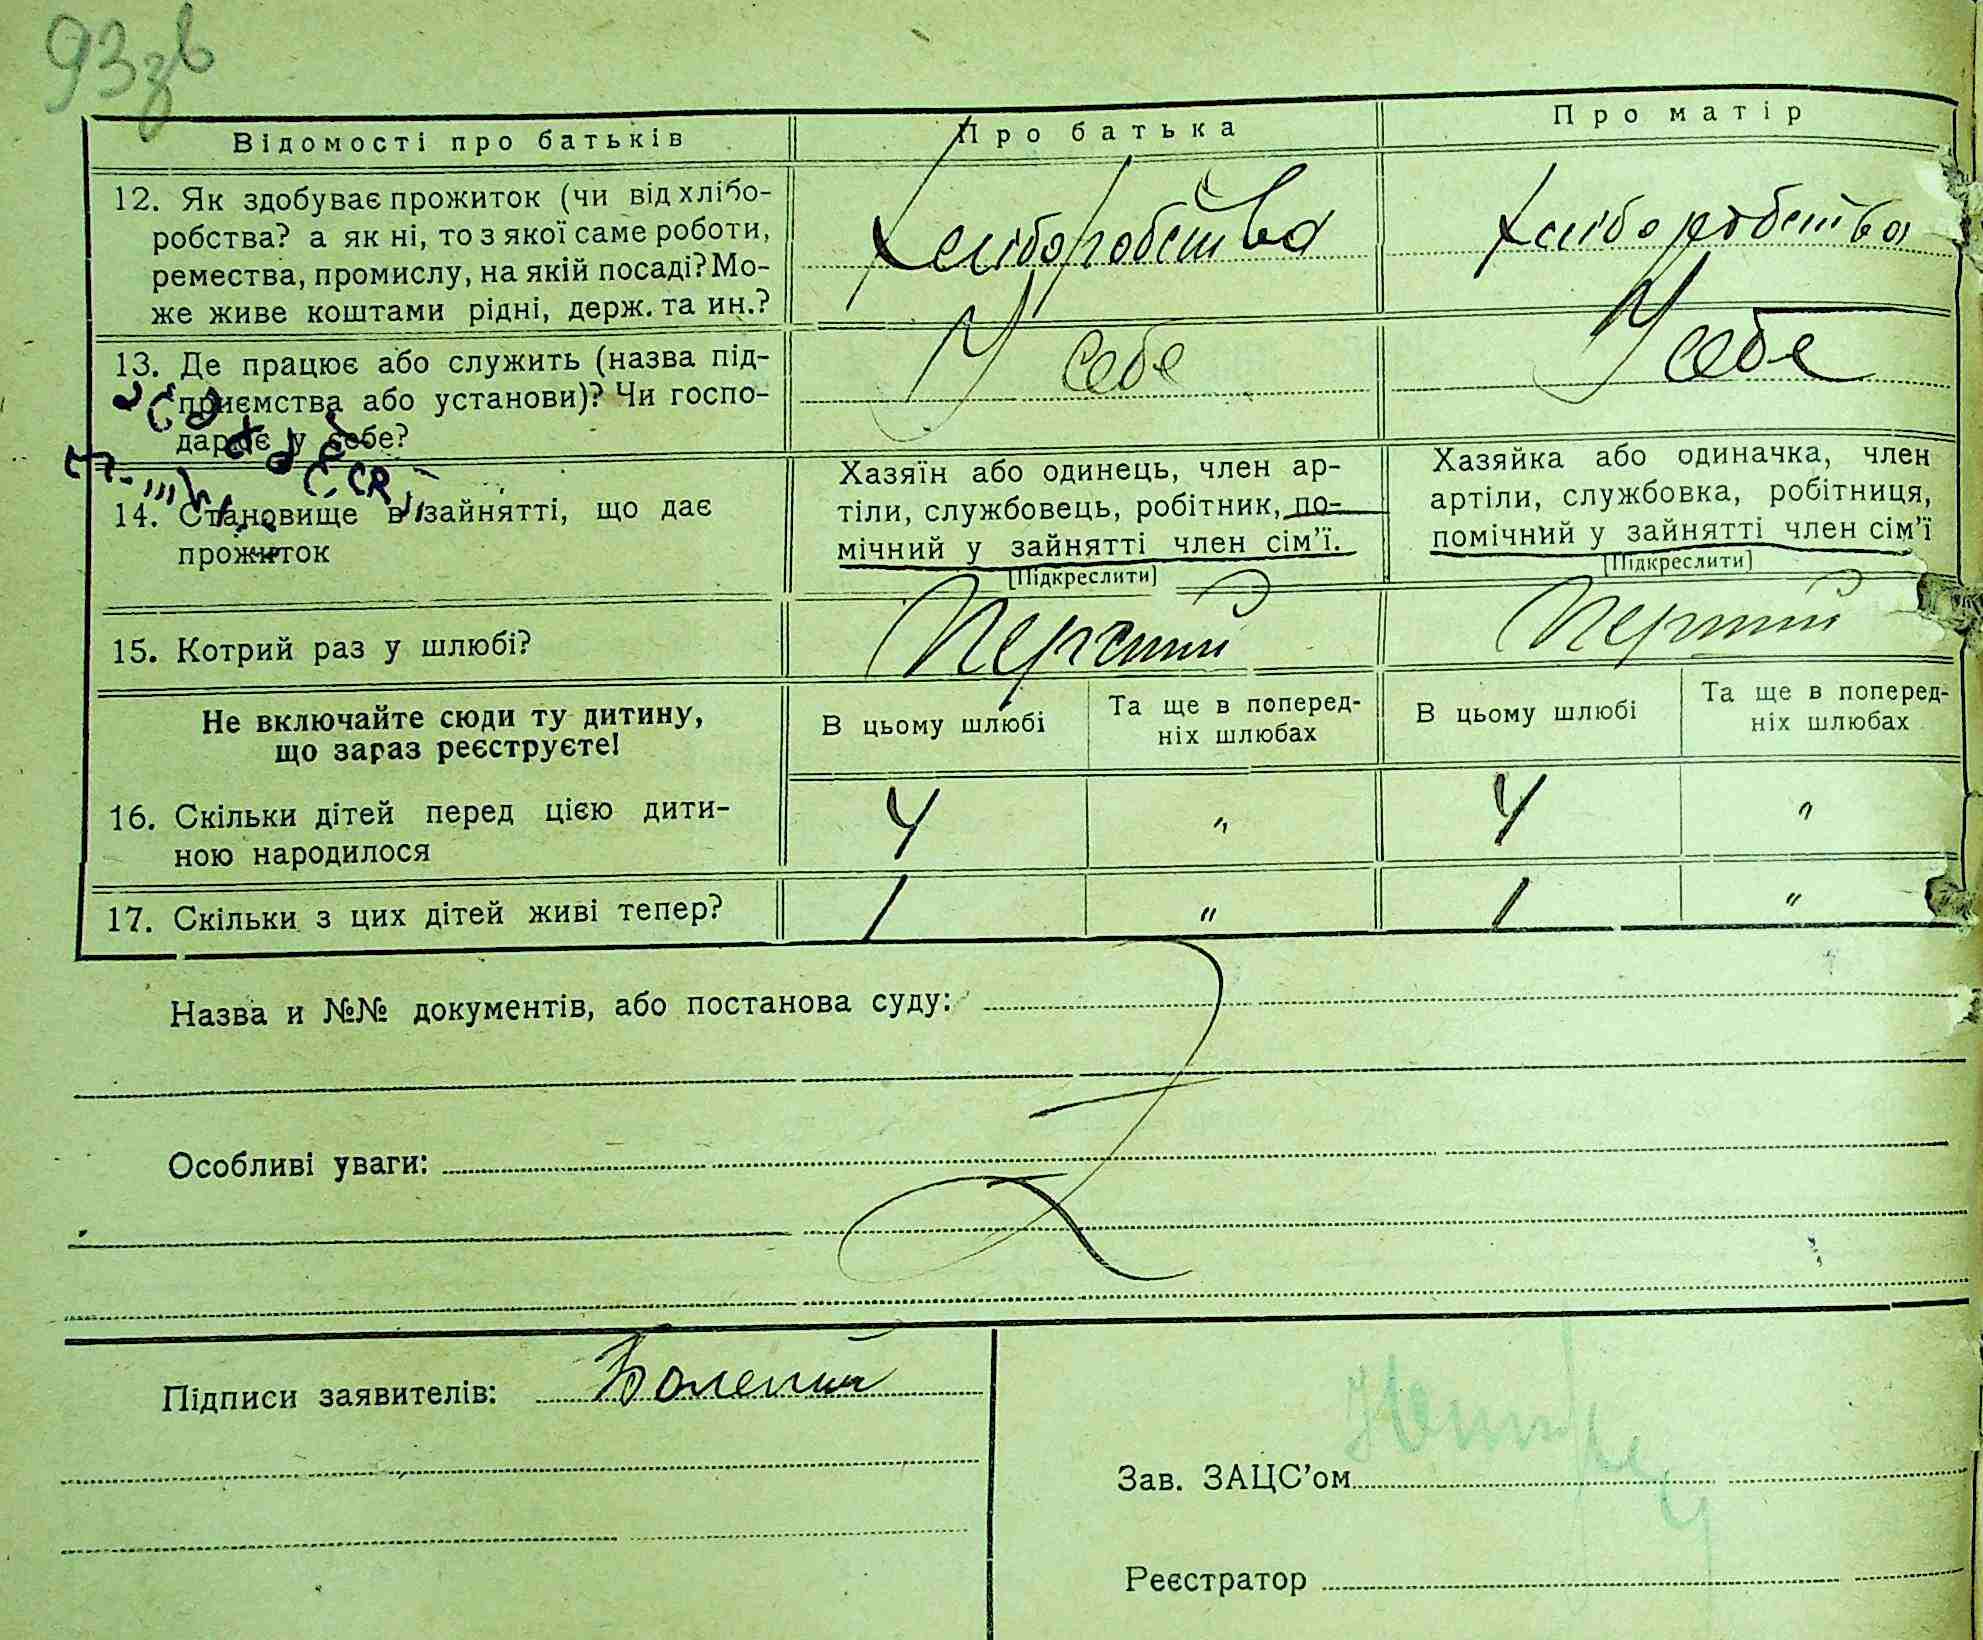 93зв
Відомості про батьків
Про батька
Про матір
12. Як здобуває прожиток (чи від хлібо-
робства? а як ні, то з якої саме роботи,
ремества, промислу, на якій посаді? Мо-
же живе коштами рідні, держ. та ин.?
Хліборобства
Хліборобства
13. Де працює або служить (назва під-
приємства або установи)? Чи госпо-
дарює у себе?
У себе
У себе
14. Становище в зайнятті, що дає
прожиток
Хазяїн або одинець, член ар-
тіли, службовець, робітник, по-
мічний у зайнятті член сім'ї.
[Підкреслити]
Хазяйка або одиначка, член
артіли, службовка, робітниця,
помічний у зайнятті член сім'ї
[Підкреслити]
15. Котрий раз у шлюбі?
Перший
Перший
Не включайте сюди ту дитину,
що зараз реєструєте!
В цьому шлюбі
Та ще в поперед-
ніх шлюбах
В цьому шлюбі
Та ще в поперед-
ніх шлюбах
16. Скільки дітей перед цією дити-
ною народилося
4 " 4 "
17. Скільки з цих дітей живі тепер?
1 " 1 "
Назва и №№ документів, або постанова суду:
Особливі уваги:
Підписи заявителів:
Зав. ЗАЦС'ом
Реєстратор